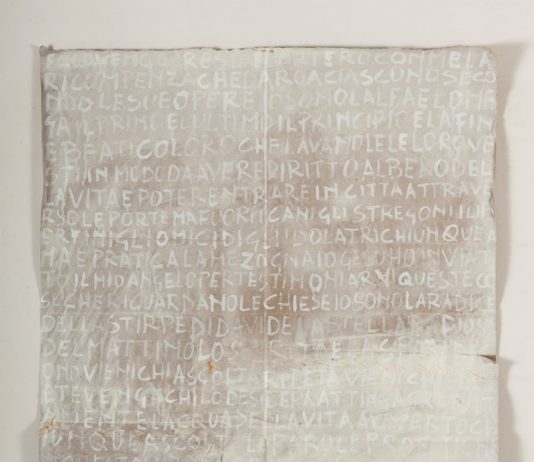 VENGO PRESTO PORTERO CON ME LA
RICOMPENZA CHE DARO A CIASCUNO SECO
NDO LE SUE OPERE IO SONO L ALFA E L OME
GA IL PRIMO E L ULTIMO IL PRINCIPIO E LA FIN
E BEATI COLORO CHE LAVANO LE LORO VE
STI IN MODO DA AVERE DIRITTO ALBERO DEL
LA VITA E POTER ENTRARE IN CITTA ATTRAVE
RSO LE PORTE MA FUORI I CANI GLI STREGONI I LIB
ERTINI GLI OMICIDI GLI IDOLATRI CHIUNQUE A
MA E PRATICA LA MEZOGNA IO GESU HO INVIA
TO IL MIO ANGELO PER TESTIMONIARVI QUESTE CO
SE CHE RIGUARDANO LE CHIESE IO SONO LA RADICE
DELLA STIRPE DI DAVIDE LA STELLA
DEL MATTINO LO SPIRITO E LA SPOSA
ONO VIENI CHI ASCOLTA RIPETA VIENI CHI HA S
ETE VENGA CHI LO DESIDERA ATTINGA
L ACQUA DELLA VITA AVVERTO CH
IUNQUE ASCOLTA LE PAROLE PROFETIC